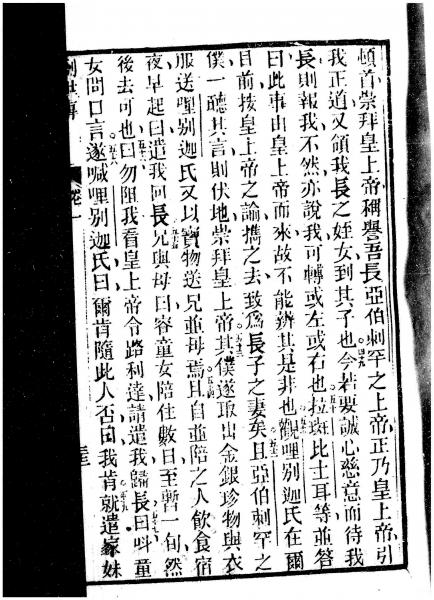 頓首崇拜皇上帝稱譽吾長亞伯剌罕之上帝正乃皇上帝引
我正道又領我長之姪女到其子也今若要誠心慈意而待我
長則報我不然亦說我可轉或左或右也拉班比士耳等並答
曰此事由皇上帝而來故不能辨其是非也觀哩別迦氏在爾
目前按皇上帝之諭攜之去致為長子之妻矣且亞伯剌罕之
僕一聽其言則伏地崇拜皇上帝其僕遂取出金銀珍物與衣
服送哩別迦氏又以寶物送兄並母焉且自並陪之人飲食宿
夜早起曰遣我回長兄與母曰容童女陪住數日至暫一旬然
後去可也曰勿阻我看皇上帝令路利達請遣我歸長曰呌童
女問口言遂喊哩別迦氏曰爾肯隨此人否曰我肯就遣嫁妹
創世傳 卷一 三三